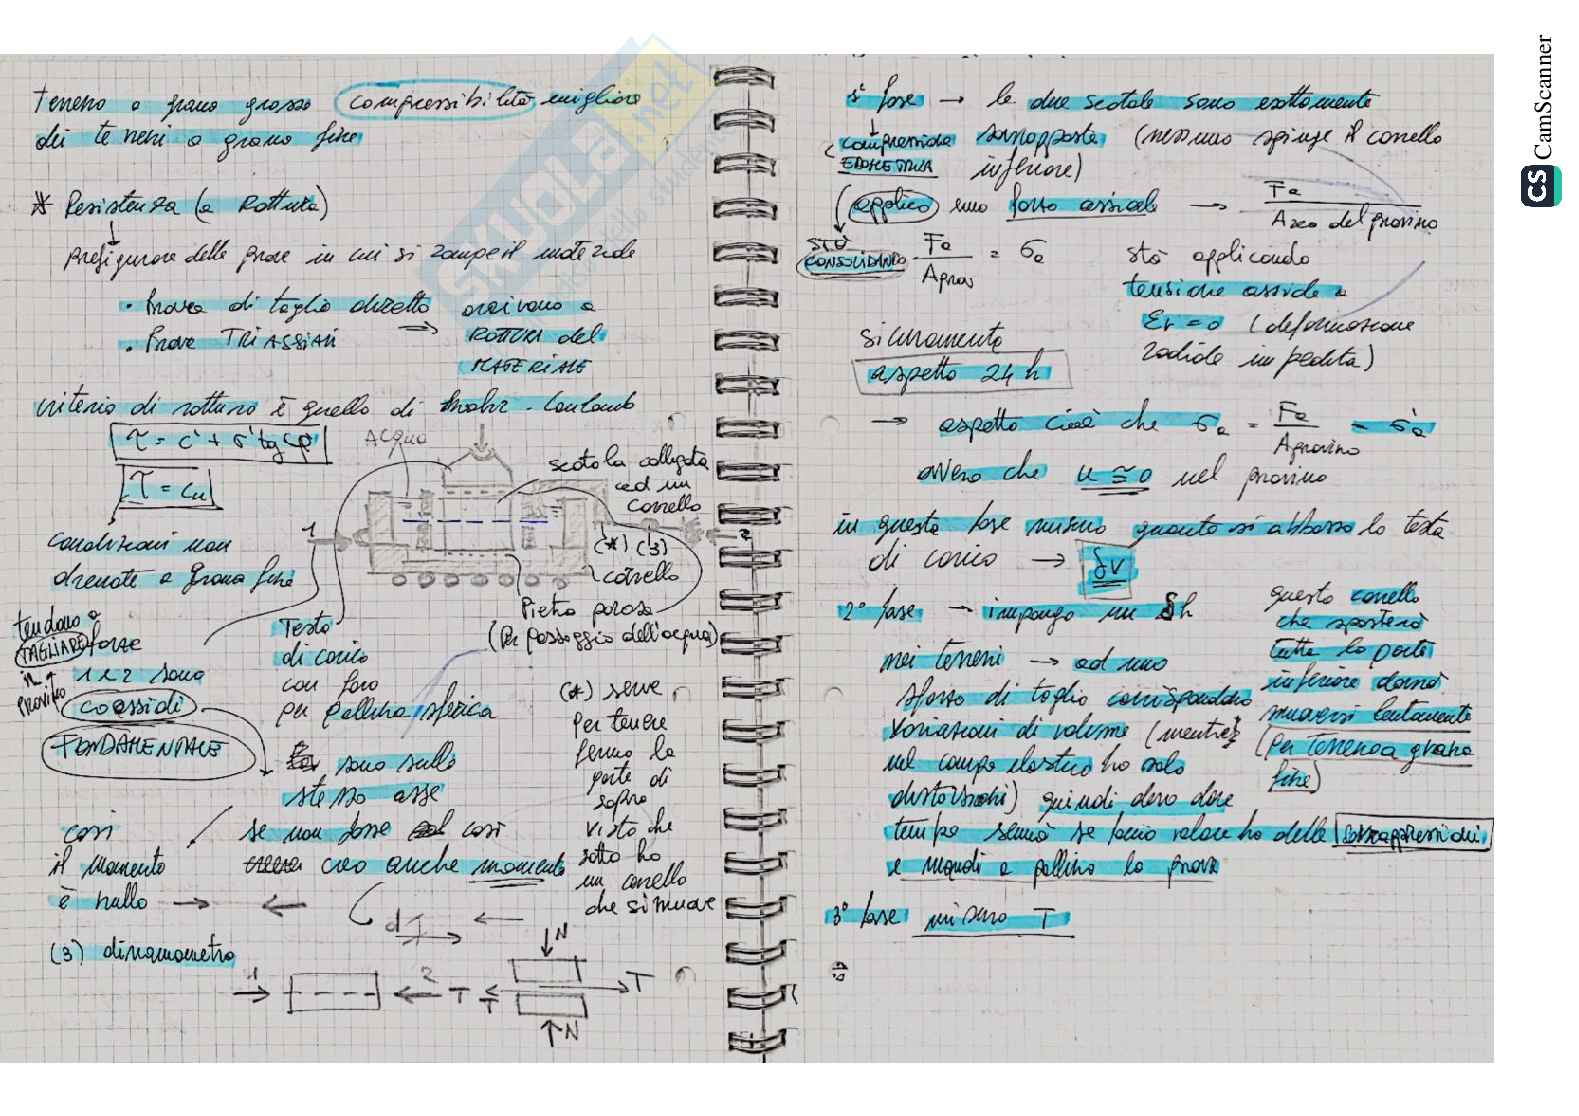 terreno a grana grossa compressibilità migliore
dei terreni a grana fine
* Resistenza (a Rottura)
prefigurare delle prove in cui si rompe il materiale
• Prova di taglio diretto arrivano a
• Prove TRIASSIALI ⇒ ROTTURA del
MATERIALE
criterio di rottura è quello di Mohr-Coulomb
τ = c' + σ' tg φ'
τ = cu
condizioni non
drenate a grana fine
Acqua
scatola collegata
ad un
carrello
1
2
(*) (3)
carrello
Pietra porosa
(Per passaggio dell'acqua)
tendono a
TAGLIARE
il
provino
forze
1 e 2 sono
coassiali
FONDAMENTALE
Testa
di carico
con foro
per pallina sferica
sono sullo
stesso asse
(*) serve
per tenere
ferma la
parte di
sopra
visto che
sotto ho
un carrello
che si muove
così
il momento
è nullo → ←
se non fosse così
creo anche momento
d
(3) dinamometro
1 2 T
N
T T
N
1° fase → le due scatole sono esattamente
sovrapposte (nessuno spinge il carrello
inferiore)
compressione
EDOMETRICA
applico una forza assiale → Fa / Area del provino
STÒ
CONSOLIDANDO
Fa / Aprov = σa
stò applicando
tensione assiale a
εr = 0 (deformazione
radiale impedita)
sicuramente
aspetto 24 h
→ aspetto cioè che σa = Fa / Aprovino = σ'a
ovvero che u ≅ 0 nel provino
in questa fase misuro quanto si abbassa la testa
di carico → δv
2° fase → impongo un δh
questo carrello
che sposterà
tutta la parte
inferiore dovrà
muoversi lentamente
(per terreno a grana
fine)
nei terreni → ad uno
sforzo di taglio corrispondono
variazioni di volume (mentre
nel campo elastico ho solo
distorsioni) quindi devo dare
tempo sennò se faccio veloce ho delle sovrappressioni
e mandi a pallino la prova
3° fase misuro T
CS CamScanner
SKUOLA.net